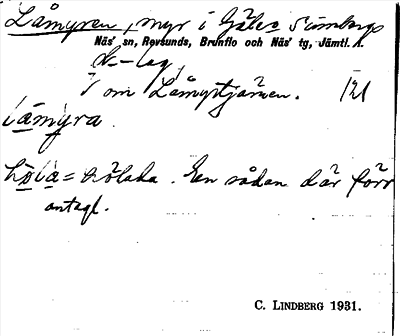 Låmyren, myr i Gåle
Näs' sn, Revsunds, Brunflo och Näs' tg, Jämtl. l.
N-lag,
V om Låmyrtjärnen. 121
låmyra
hola = hölada. En sådan där förr
antagl.
C. LINDBERG 1931.